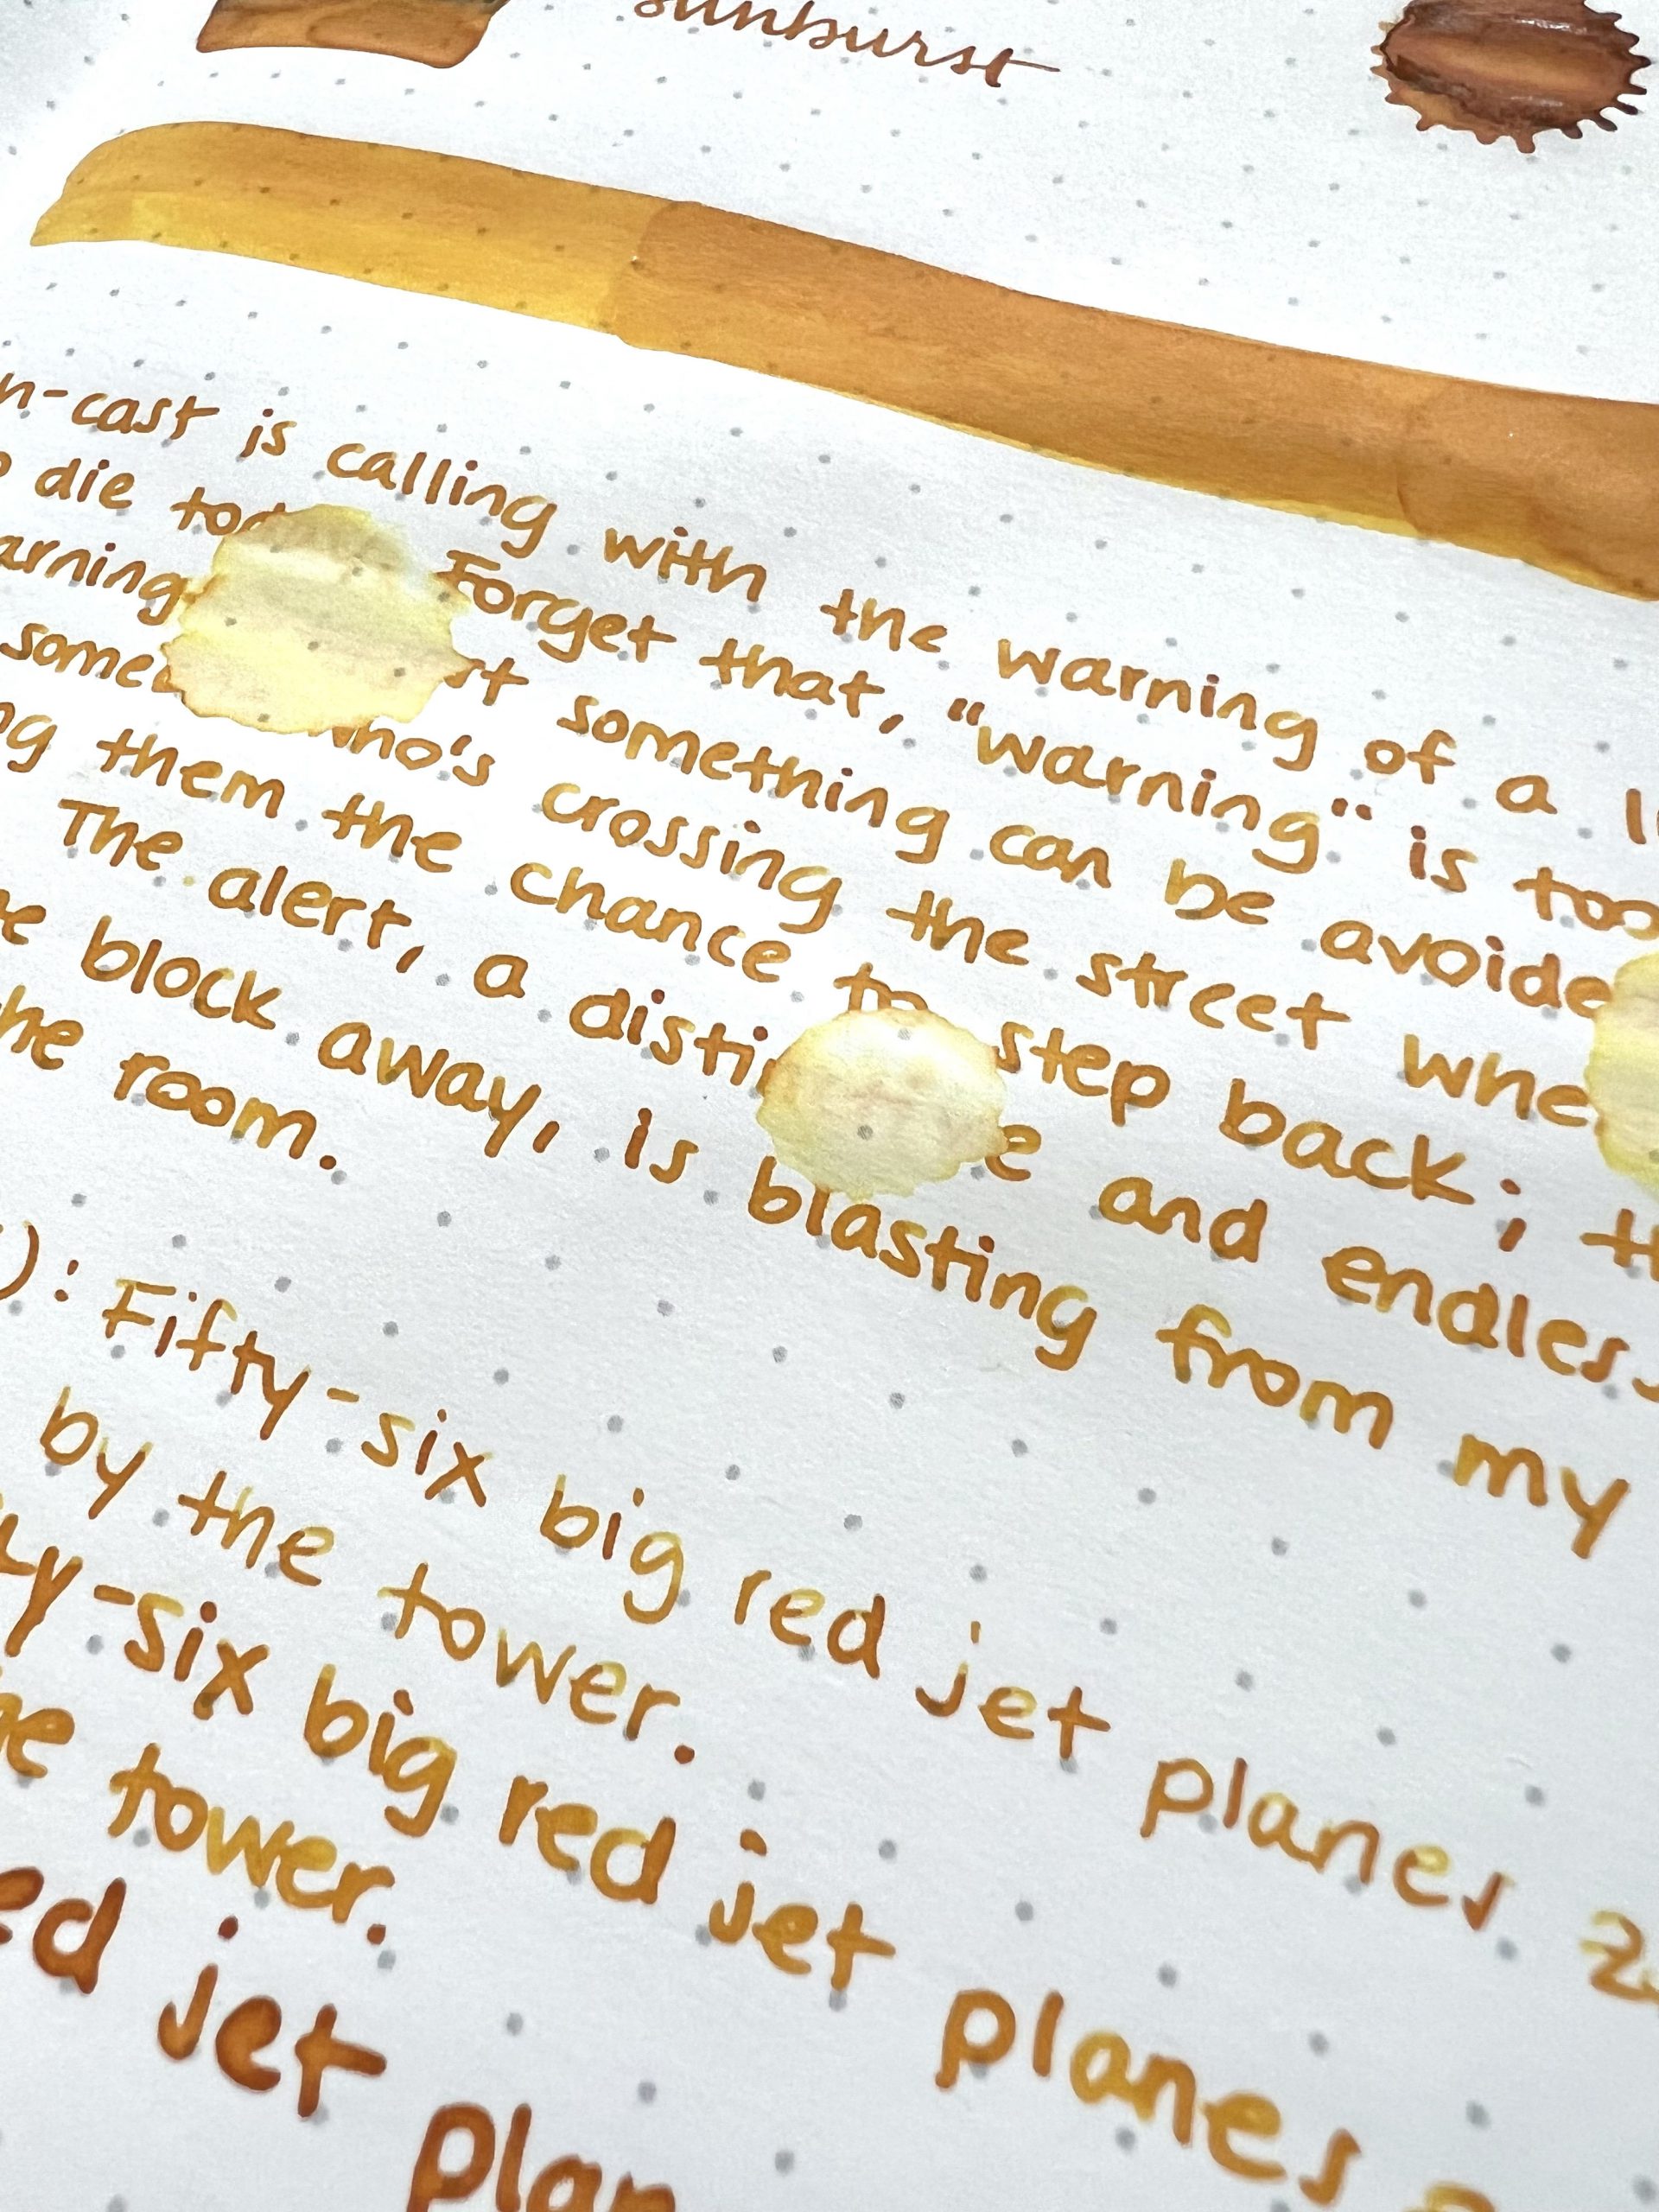 sunburst
n-cast is calling with the warning of a
die Forget that, "warning" is too
arning something can be avoide
some who's crossing the street whe
ng them the chance to step back; th
The alert, a disti e and endless
e block away, is blasting from my
he room.
): Fifty-six big red jet planes
by the tower.
y-six big red jet planes
he tower.
ed jet plan